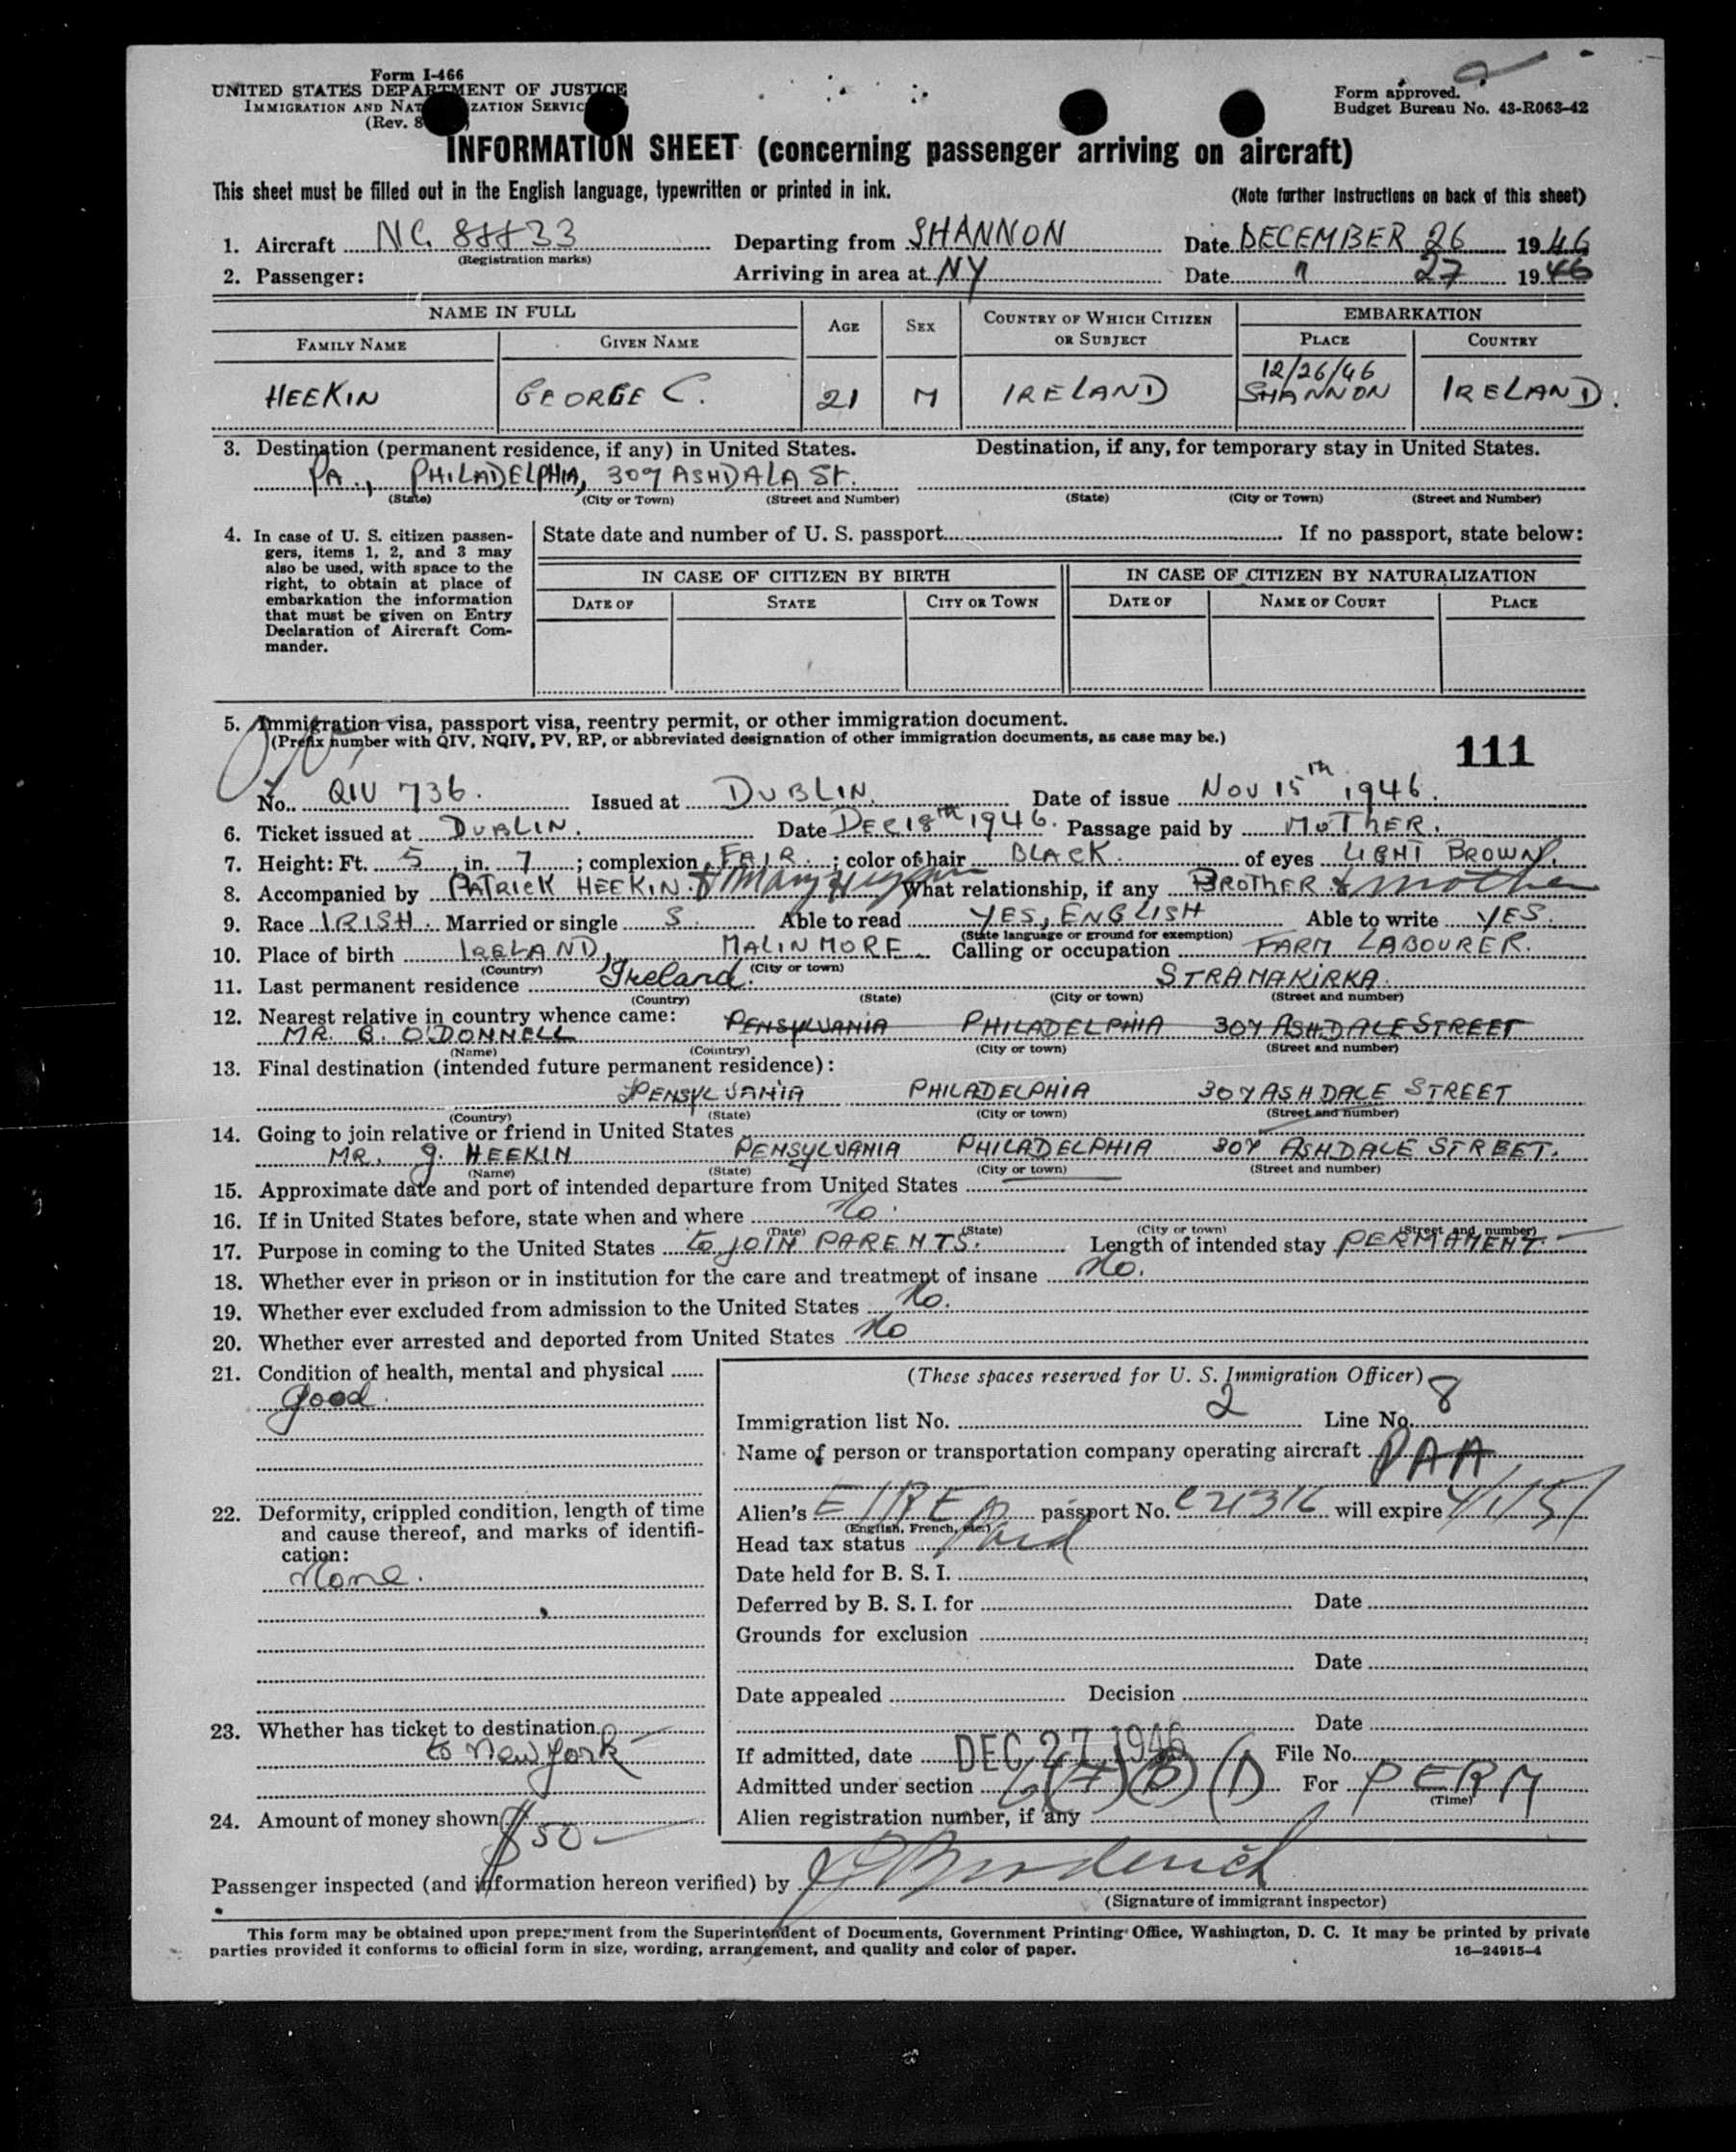 Form I-466
UNITED STATES DEPARTMENT OF JUSTICE
IMMIGRATION AND NAT ZATION SERVIC
(Rev. 8 )
Form approved.
Budget Bureau No. 43-R063-42
INFORMATION SHEET (concerning passenger arriving on aircraft)
This sheet must be filled out in the English language, typewritten or printed in ink. (Note further instructions on back of this sheet)
1. Aircraft NC Departing from SHANNON Date DECEMBER 26 1946
(Registration marks)
2. Passenger: Arriving in area at NY Date " 27 1946
NAME IN FULL AGE SEX COUNTRY OF WHICH CITIZEN OR SUBJECT EMBARKATION
FAMILY NAME GIVEN NAME PLACE COUNTRY
12/26/46
HEEKIN GEORGE C. 21 M IRELAND SHANNON IRELAND.
3. Destination (permanent residence, if any) in United States. Destination, if any, for temporary stay in United States.
PA., PHILADELPHIA, 307 ASHDALA St.
(State) (City or Town) (Street and Number) (State) (City or Town) (Street and Number)
4. In case of U. S. citizen passen-
gers, items 1, 2, and 3 may
also be used, with space to the
right, to obtain at place of
embarkation the information
that must be given on Entry
Declaration of Aircraft Com-
mander.
State date and number of U. S. passport If no passport, state below:
IN CASE OF CITIZEN BY BIRTH IN CASE OF CITIZEN BY NATURALIZATION
DATE OF STATE CITY OR TOWN DATE OF NAME OF COURT PLACE
5. Immigration visa, passport visa, reentry permit, or other immigration document.
(Prefix number with QIV, NQIV, PV, RP, or abbreviated designation of other immigration documents, as case may be.)
111
No. QIV 736. Issued at DUBLIN. Date of issue NOV 15th 1946.
6. Ticket issued at DUBLIN. Date DEC 18th 1946. Passage paid by MOTHER.
7. Height: Ft. 5, in. 7; complexion FAIR.; color of hair BLACK. of eyes LIGHT BROWN.
8. Accompanied by PATRICK HEEKIN. & Mary What relationship, if any BROTHER & mother
9. Race IRISH. Married or single S. Able to read YES, ENGLISH Able to write YES.
(State language or ground for exemption)
10. Place of birth IRELAND, MALINMORE Calling or occupation FARM LABOURER.
(Country) (City or town)
11. Last permanent residence Ireland. STRAMAKIRKA.
(Country) (State) (City or town) (Street and number)
12. Nearest relative in country whence came: PENSYLVANIA PHILADELPHIA 307 ASHDALE STREET
MR. B. O'DONNELL
(Name) (Country) (City or town) (Street and number)
13. Final destination (intended future permanent residence):
PENSYLVANIA PHILADELPHIA 307 ASHDALE STREET
(Country) (State) (City or town) (Street and number)
14. Going to join relative or friend in United States
MR. J. HEEKIN PENSYLVANIA PHILADELPHIA 307 ASHDALE STREET.
(Name) (State) (City or town) (Street and number)
15. Approximate date and port of intended departure from United States
16. If in United States before, state when and where No.
(Date) (State) (City or town) (Street and number)
17. Purpose in coming to the United States to JOIN PARENTS. Length of intended stay PERMANENT.
18. Whether ever in prison or in institution for the care and treatment of insane No.
19. Whether ever excluded from admission to the United States No.
20. Whether ever arrested and deported from United States No
21. Condition of health, mental and physical
good.
22. Deformity, crippled condition, length of time
and cause thereof, and marks of identifi-
cation:
None.
23. Whether has ticket to destination
to New York
24. Amount of money shown $50
(These spaces reserved for U. S. Immigration Officer)
Immigration list No. 2 Line No. 8
Name of person or transportation company operating aircraft PAA
Alien's EIRE passport No. C 21316 will expire 4/1/51
(English, French, etc.)
Head tax status Paid
Date held for B. S. I.
Deferred by B. S. I. for Date
Grounds for exclusion
Date
Date appealed Decision
Date
If admitted, date DEC 27 1946 File No.
Admitted under section For PERM
(Time)
Alien registration number, if any
Passenger inspected (and information hereon verified) by
(Signature of immigrant inspector)
This form may be obtained upon prepayment from the Superintendent of Documents, Government Printing Office, Washington, D. C. It may be printed by private
parties provided it conforms to official form in size, wording, arrangement, and quality and color of paper. 16—24915-4